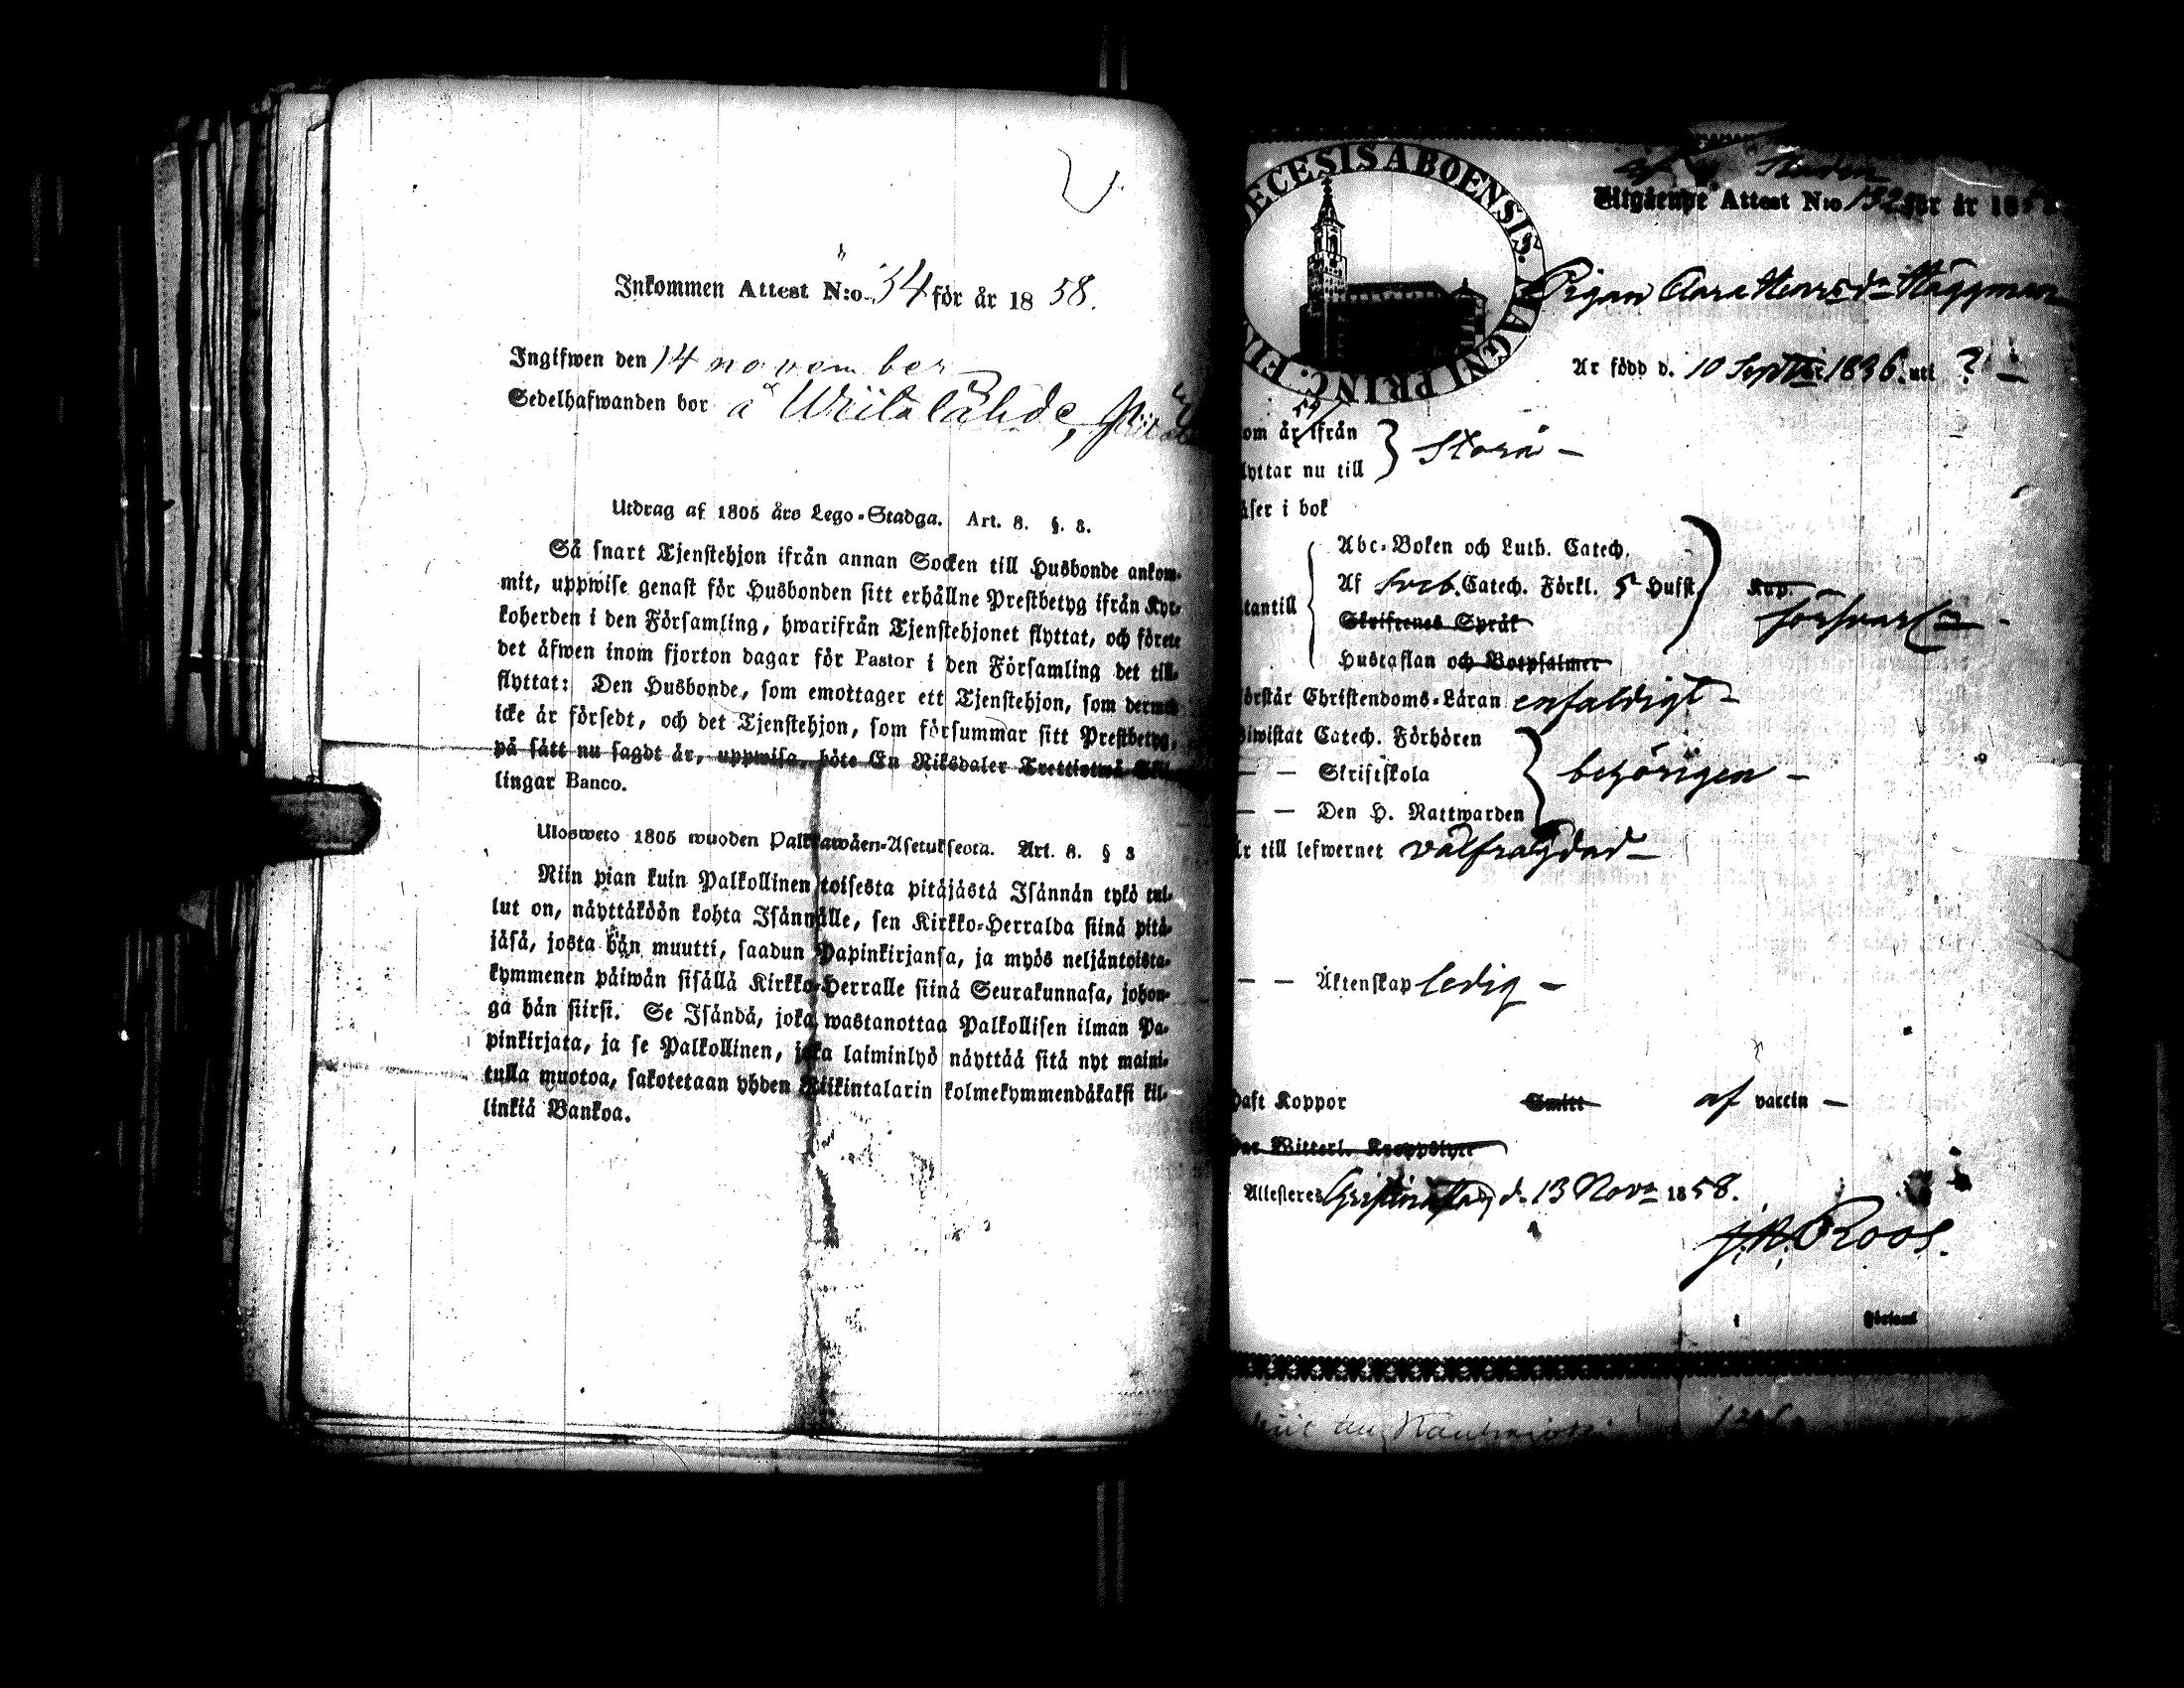 Inkommen Attest N:o 54 för år 1858.
Ingifwen den 14 november
Sedelhafwanden bor å Wiitalähde,
Utdrag af 1805 års Lego-Stadga. Art. 8. §. 3.
Så snart Tjenstehjon ifrån annan Socken till Husbonde ankom-
mit, uppwise genast för Husbonden sitt erhållne Prestbetyg ifrån Kyr-
koherden i den Församling, hwarifrån Tjenstehjonet flyttat, och förete
det äfwen inom fjorton dagar för Pastor i den Församling det till-
flyttat: Den Husbonde, som emottager ett Tjenstehjon, som dermed
icke är försedt, och det Tjenstehjon, som försummar sitt Prestbetyg,
på sätt nu sagdt är, uppwisa, böte En Riksdaler Trettiotwå Skil-
lingar Banco.
Ulosweto 1805 wuoden Palkkawäen-Asetuksesta. Art. 8. § 3
Niin pian kuin Palkollinen toisesta pitäjästä Isännän tykö tul-
lut on, näyttäköön kohta Isännälle, sen Kirkko-Herralda siinä pitä-
jäsä, josta hän muutti, saadun Papinkirjansa, ja myös neljäntoista-
kymmenen päiwän sisällä Kirkko-Herralle siinä Seurakunnasa, johon-
ga hän siirsi. Se Isändä, joka wastanottaa Palkollisen ilman Pa-
pinkirjata, ja se Palkollinen, joka laiminlyö näyttää sitä nyt maini-
tulla muotoa, sakotetaan yhden Riikintalarin kolmekymmendäkaksi kil-
linkiä Bankoa.
ECESIS ABOENSIS. MAGNI PRINC. FI
af Staden
Utgående Attest N:o 132 för år 18
Pigan Clara Henrsdr Häggman
Är född d. 10 Septbr 1836. uti ? –
om år 54 ifrån
lyttar nu till } Storå –
äser i bok
Abc-Boken och Luth. Catech.
Af Sveb. Catech. Förkl. 5 Hufst. Kap.
tantill Skriftenes Språk försvarl.
Hustaflan och Botpsalmer
örstår Christendoms-Läran enfaldigt –
Biwistat Catech. Förhören
— — Skriftskola } behörigen –
— — Den H. Nattwarden
är till lefwernet välfräjdad –
— — Äktenskap ledig –
haft Koppor Smitt af vaccin –
Har Witterl. Kroppslyte
Attesteras Christinestad d. 13 Novr 1858.
J. R. Roos.